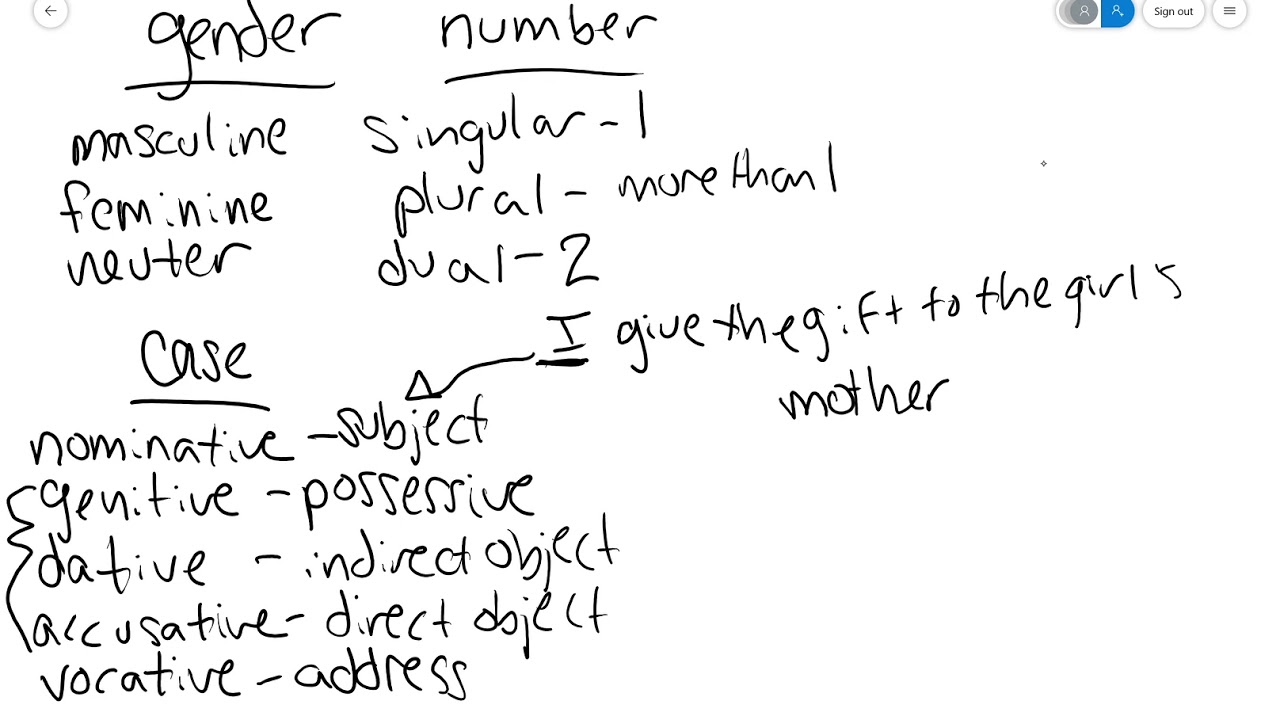 Sign out
gender number
masculine singular - 1
feminine plural - more than 1
neuter dual - 2
I give the gift to the girl's
mother
case
nominative - subject
genitive - possessive
dative - indirect object
accusative - direct object
vocative - address